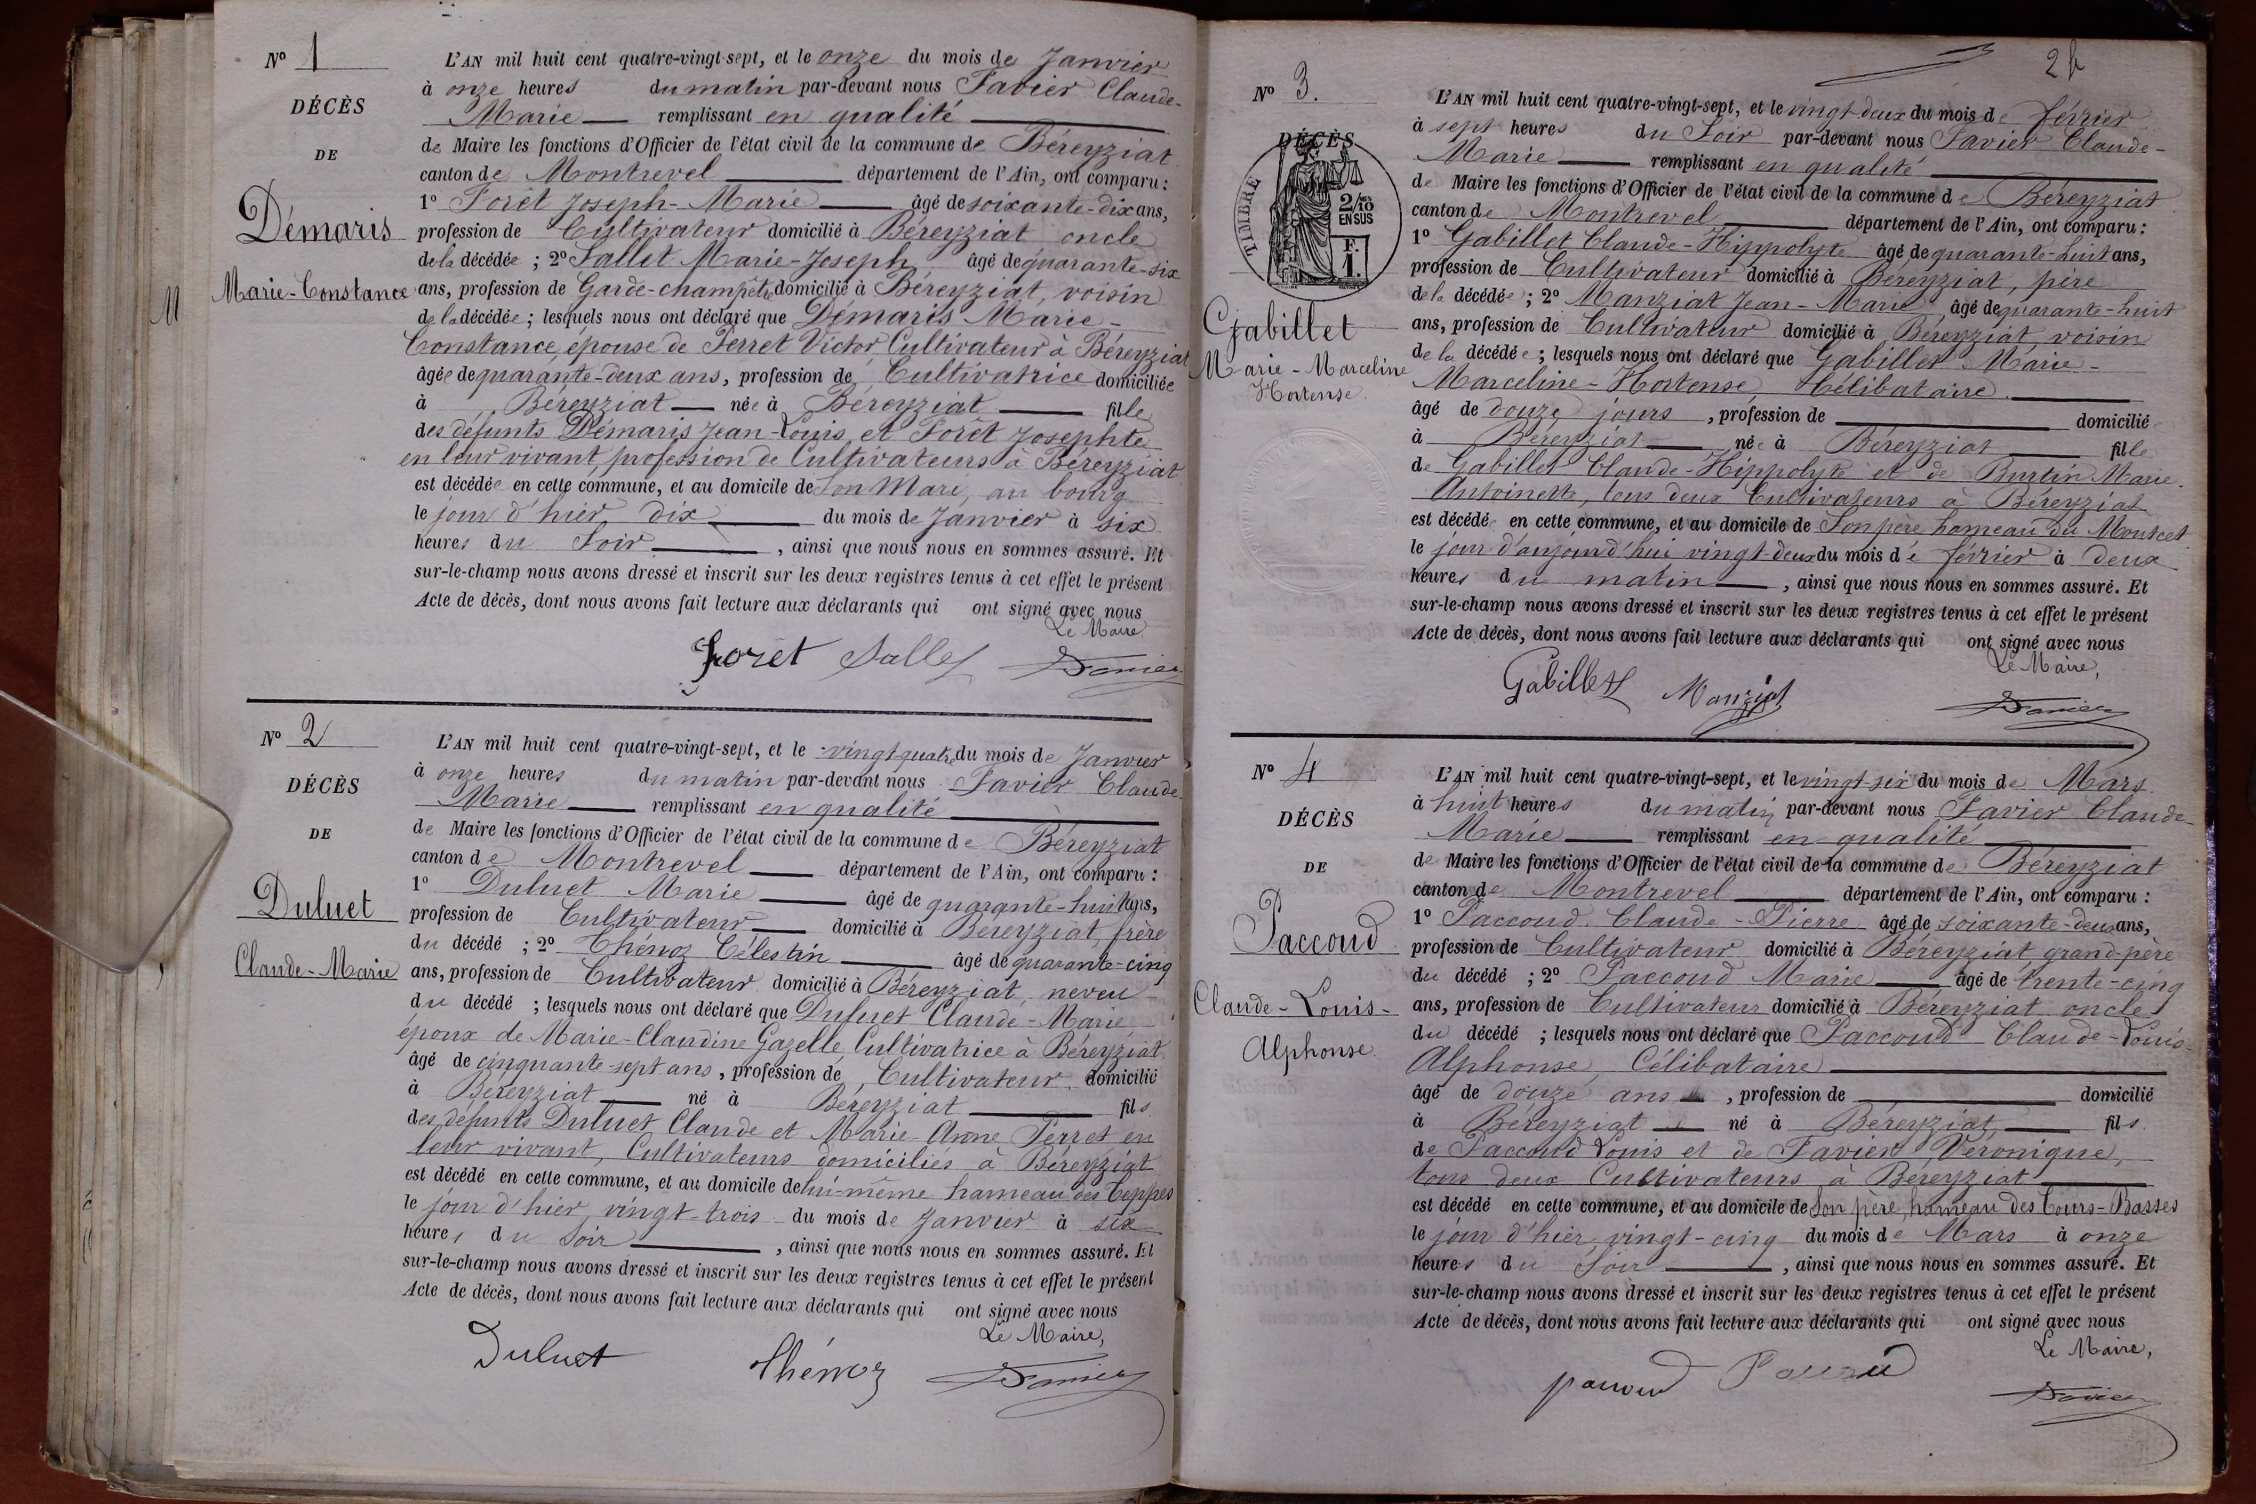 N° 1
DÉCÈS
DE
Démaris
Marie-Constance
L'AN mil huit cent quatre-vingt-sept, et le onze du mois de Janvier
à onze heures du matin par-devant nous Favier Claude-
Marie remplissant en qualité
de Maire les fonctions d'Officier de l'état civil de la commune de Béreyziat
canton de Montrevel département de l'Ain, ont comparu :
1° Forêt Joseph-Marie âgé de soixante-dix ans,
profession de Cultivateur domicilié à Béreyziat oncle
de la décédée ; 2° Sallet Marie-Joseph âgé de quarante-six
ans, profession de Garde-champêtre domicilié à Béreyziat, voisin
de la décédée ; lesquels nous ont déclaré que Démaris Marie-
Constance, épouse de Perret Victor Cultivateur à Béreyziat
âgée de quarante-deux ans, profession de Cultivatrice domiciliée
à Béreyziat née à Béreyziat fille
des défunts Démaris Jean-Louis et Forêt Josephte
en leur vivant, profession de Cultivateurs à Béreyziat
est décédée en cette commune, et au domicile de son Mari, au bourg
le jour d'hier dix du mois de Janvier à six
heures du Soir, ainsi que nous nous en sommes assuré. Et
sur-le-champ nous avons dressé et inscrit sur les deux registres tenus à cet effet le présent
Acte de décès, dont nous avons fait lecture aux déclarants qui ont signé avec nous
Le Maire
Forêt Sallet Favier
N° 2
DÉCÈS
DE
Duluet
Claude-Marie
L'AN mil huit cent quatre-vingt-sept, et le vingt quatre du mois de Janvier
à onze heures du matin par-devant nous Favier Claude-
Marie remplissant en qualité
de Maire les fonctions d'Officier de l'état civil de la commune de Béreyziat
canton de Montrevel département de l'Ain, ont comparu :
1° Duluet Marie âgé de quarante-huit ans,
profession de Cultivateur domicilié à Béreyziat, frère
du décédé ; 2° Thénoz Célestin âgé de quarante-cinq
ans, profession de Cultivateur domicilié à Béreyziat, neveu
du décédé ; lesquels nous ont déclaré que Duluet Claude-Marie
époux de Marie-Claudine Gazelle, Cultivatrice à Béreyziat
âgé de cinquante-sept ans, profession de Cultivateur domicilié
à Béreyziat né à Béreyziat fils
des défunts Duluet Claude et Marie-Anne Perret en
leur vivant, Cultivateurs domiciliés à Béreyziat
est décédé en cette commune, et au domicile de lui-même hameau des Teppes
le jour d'hier, vingt-trois du mois de Janvier à six
heures du Soir, ainsi que nous nous en sommes assuré. Et
sur-le-champ nous avons dressé et inscrit sur les deux registres tenus à cet effet le présent
Acte de décès, dont nous avons fait lecture aux déclarants qui ont signé avec nous
Le Maire,
Duluet Thénoz Favier
N° 3.
DÉCÈS
TIMBRE
2/10
EN SUS
Gabillet
Marie-Marceline
Hortense
L'AN mil huit cent quatre-vingt-sept, et le vingt-deux du mois de février
à sept heures du Soir par-devant nous Favier Claude-
Marie remplissant en qualité
de Maire les fonctions d'Officier de l'état civil de la commune de Béreyziat
canton de Montrevel département de l'Ain, ont comparu :
1° Gabillet Claude-Hippolyte âgé de quarante-huit ans,
profession de Cultivateur domicilié à Béreyziat, père
de la décédée ; 2° Manziat Jean-Marie âgé de quarante-huit
ans, profession de Cultivateur domicilié à Béreyziat, voisin
de la décédée ; lesquels nous ont déclaré que Gabillet Marie-
Marceline-Hortense, Célibataire.
âgé de douze jours, profession de domicilié
à Béreyziat née à Béreyziat fille
de Gabillet Claude-Hippolyte et de Burtin Marie-
Antoinette, tous deux Cultivateurs à Béreyziat
est décédée en cette commune, et au domicile de son père hameau du Montcet
le jour d'aujourd'hui vingt-deux du mois de février à deux
heures du matin, ainsi que nous nous en sommes assuré. Et
sur-le-champ nous avons dressé et inscrit sur les deux registres tenus à cet effet le présent
Acte de décès, dont nous avons fait lecture aux déclarants qui ont signé avec nous
Le Maire,
Gabillet Manziat Favier
N° 4
DÉCÈS
DE
Paccoud
Claude-Louis-
Alphonse
L'AN mil huit cent quatre-vingt-sept, et le vingt-six du mois de Mars
à huit heures du matin par-devant nous Favier Claude-
Marie remplissant en qualité
de Maire les fonctions d'Officier de l'état civil de la commune de Béreyziat
canton de Montrevel département de l'Ain, ont comparu :
1° Paccoud Claude-Pierre âgé de soixante-deux ans,
profession de Cultivateur domicilié à Béreyziat, grand-père
du décédé ; 2° Paccoud Marie âgé de trente-cinq
ans, profession de Cultivateur domicilié à Béreyziat oncle
du décédé ; lesquels nous ont déclaré que Paccoud Claude-Louis-
Alphonse, Célibataire
âgé de douze ans, profession de domicilié
à Béreyziat né à Béreyziat fils
de Paccoud Louis et de Favier Véronique,
tous deux Cultivateurs à Béreyziat
est décédé en cette commune, et au domicile de son père, hameau des Cours-Basses
le jour d'hier, vingt-cinq du mois de Mars à onze
heures du Soir, ainsi que nous nous en sommes assuré. Et
sur-le-champ nous avons dressé et inscrit sur les deux registres tenus à cet effet le présent
Acte de décès, dont nous avons fait lecture aux déclarants qui ont signé avec nous
Le Maire,
paccoud Paccoud Favier